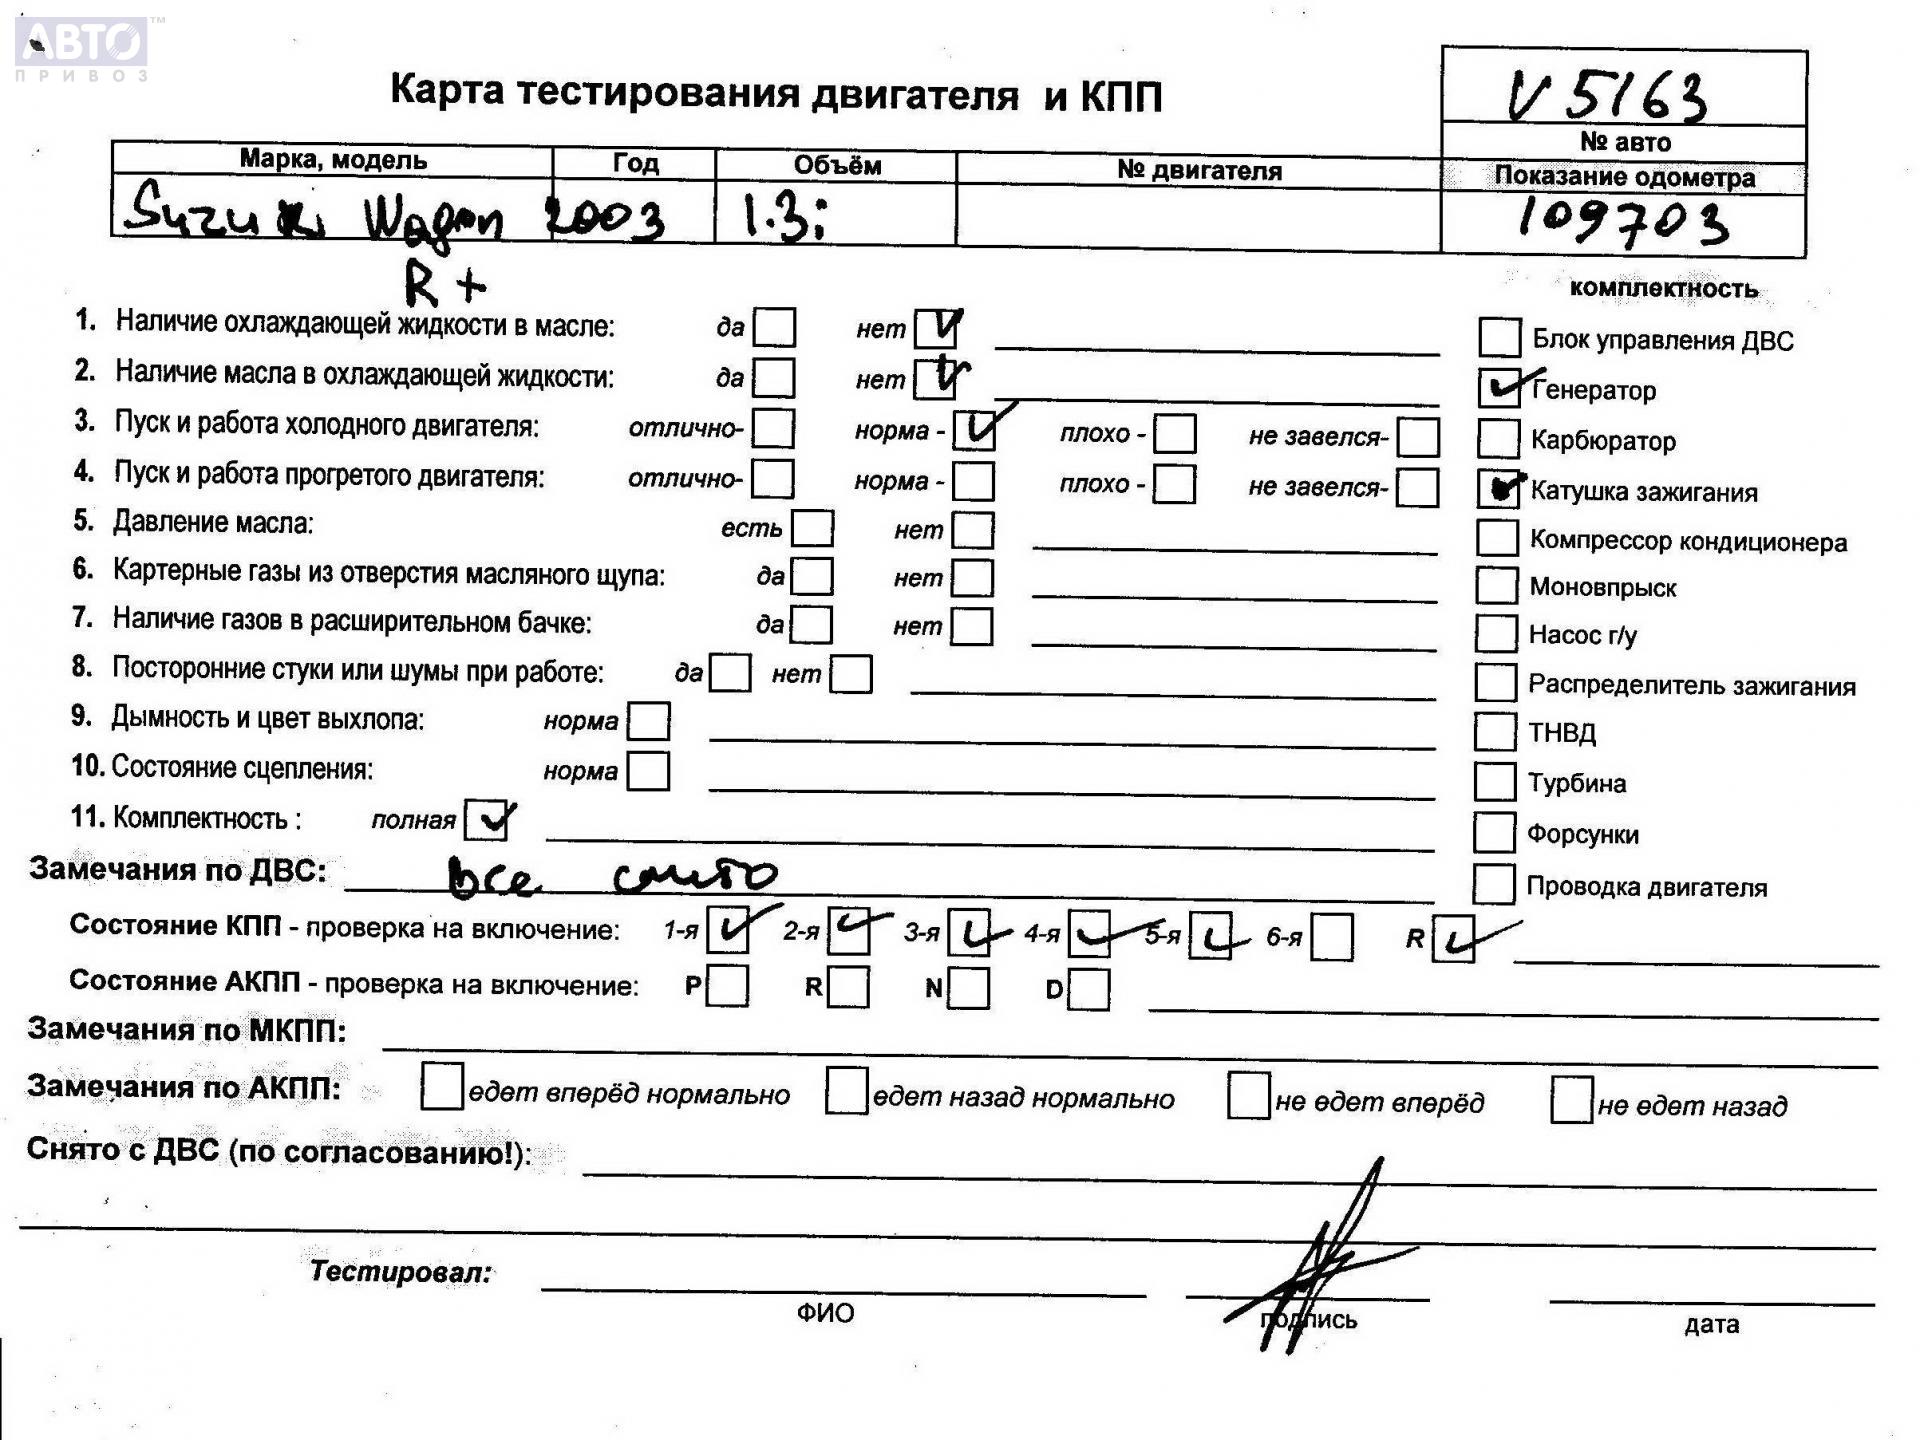 АВТО™
ПРИВОЗ
Карта тестирования двигателя и КПП
V 5163
№ авто
Марка, модель Год Объём № двигателя Показание одометра
Suzuki Wagon 2003 1.3i 109703
R +
комплектность
1. Наличие охлаждающей жидкости в масле: да нет V Блок управления ДВС
2. Наличие масла в охлаждающей жидкости: да нет V ✓ Генератор
3. Пуск и работа холодного двигателя: отлично- норма - ✓ плохо - не завелся- Карбюратор
4. Пуск и работа прогретого двигателя: отлично- норма - плохо - не завелся- ✓ Катушка зажигания
5. Давление масла: есть нет Компрессор кондиционера
6. Картерные газы из отверстия масляного щупа: да нет Моновпрыск
7. Наличие газов в расширительном бачке: да нет Насос г/у
8. Посторонние стуки или шумы при работе: да нет Распределитель зажигания
9. Дымность и цвет выхлопа: норма ТНВД
10. Состояние сцепления: норма Турбина
11. Комплектность : полная ✓ Форсунки
Замечания по ДВС: все снято Проводка двигателя
Состояние КПП - проверка на включение: 1-я ✓ 2-я ✓ 3-я ✓ 4-я ✓ 5-я ✓ 6-я R ✓
Состояние АКПП - проверка на включение: P R N D
Замечания по МКПП:
Замечания по АКПП: едет вперёд нормально едет назад нормально не едет вперёд не едет назад
Снято с ДВС (по согласованию!):
Тестировал:
ФИО подпись дата